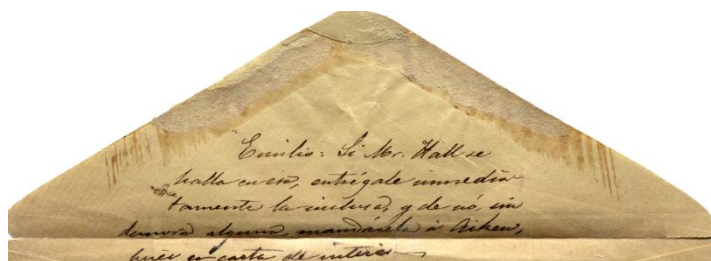 Emilio: Si Mr. Hall se
halla en esa, entrégale inmedia
tamente la inclusa, y de nó, sin
demora alguna, mandásela á Aiken,
pues es carta de interés